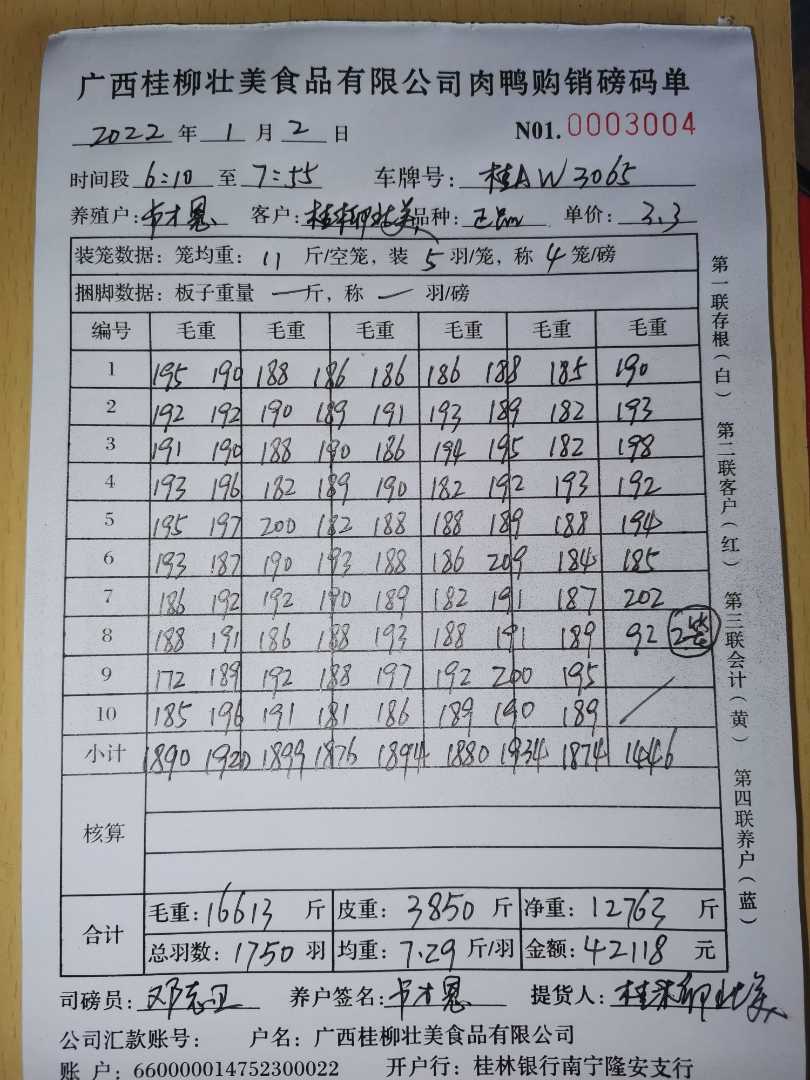 广西桂柳壮美食品有限公司肉鸭购销磅码单
2022 年 1 月 2 日 N01. 0003004
时间段 6:10 至 7:55 车牌号: 桂AW3065
养殖户: 韦才恩 客户: 桂柳壮美 品种: 单价: 3.3
装笼数据: 笼均重: 11 斤/空笼, 装 5 羽/笼, 称 4 笼/磅
捆脚数据: 板子重量 一 斤, 称 一 羽/磅
编号 毛重 毛重 毛重 毛重 毛重 毛重
1 195 190 188 186 186 186 188 185 190
2 192 192 190 189 191 193 189 182 193
3 191 190 188 190 186 194 195 182 198
4 193 196 182 189 190 182 192 193 192
5 195 197 200 182 188 188 189 188 194
6 193 187 190 193 188 186 209 184 185
7 186 192 192 190 189 182 191 187 202
8 188 191 186 188 193 188 191 189 92 2笼
9 172 189 192 188 197 192 200 195
10 185 196 191 181 186 189 190 189
小计 1890 1920 1899 1876 1894 1880 1934 1874 1446
核算
合计
毛重: 16613 斤 皮重: 3850 斤 净重: 12763 斤
总羽数: 1750 羽 均重: 7.29 斤/羽 金额: 42118 元
司磅员: 邓志卫 养户签名: 韦才恩 提货人: 桂柳壮美
公司汇款账号: 户名: 广西桂柳壮美食品有限公司
账 户: 660000014752300022 开户行: 桂林银行南宁隆安支行
第一联存根(白)
第二联客户(红)
第三联会计(黄)
第四联养户(蓝)